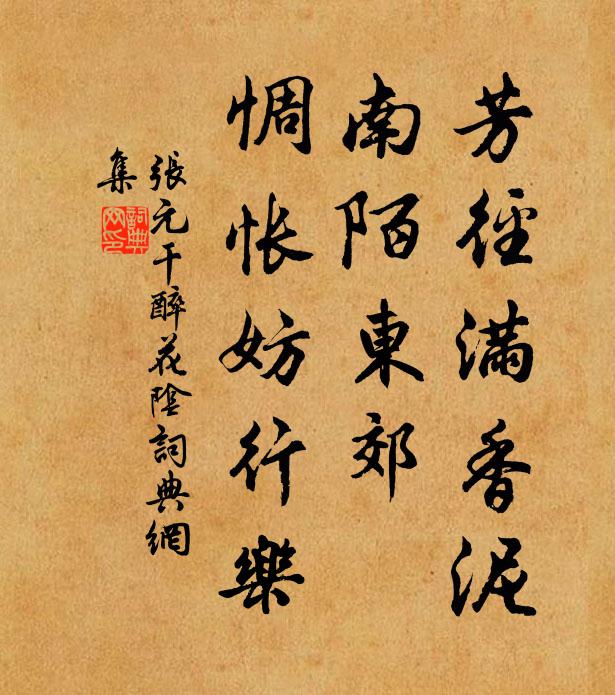 芳徑滿香泥
南陌東郊
惆悵妨行樂
張元干醉花陰詞典網
集
詞典
网印